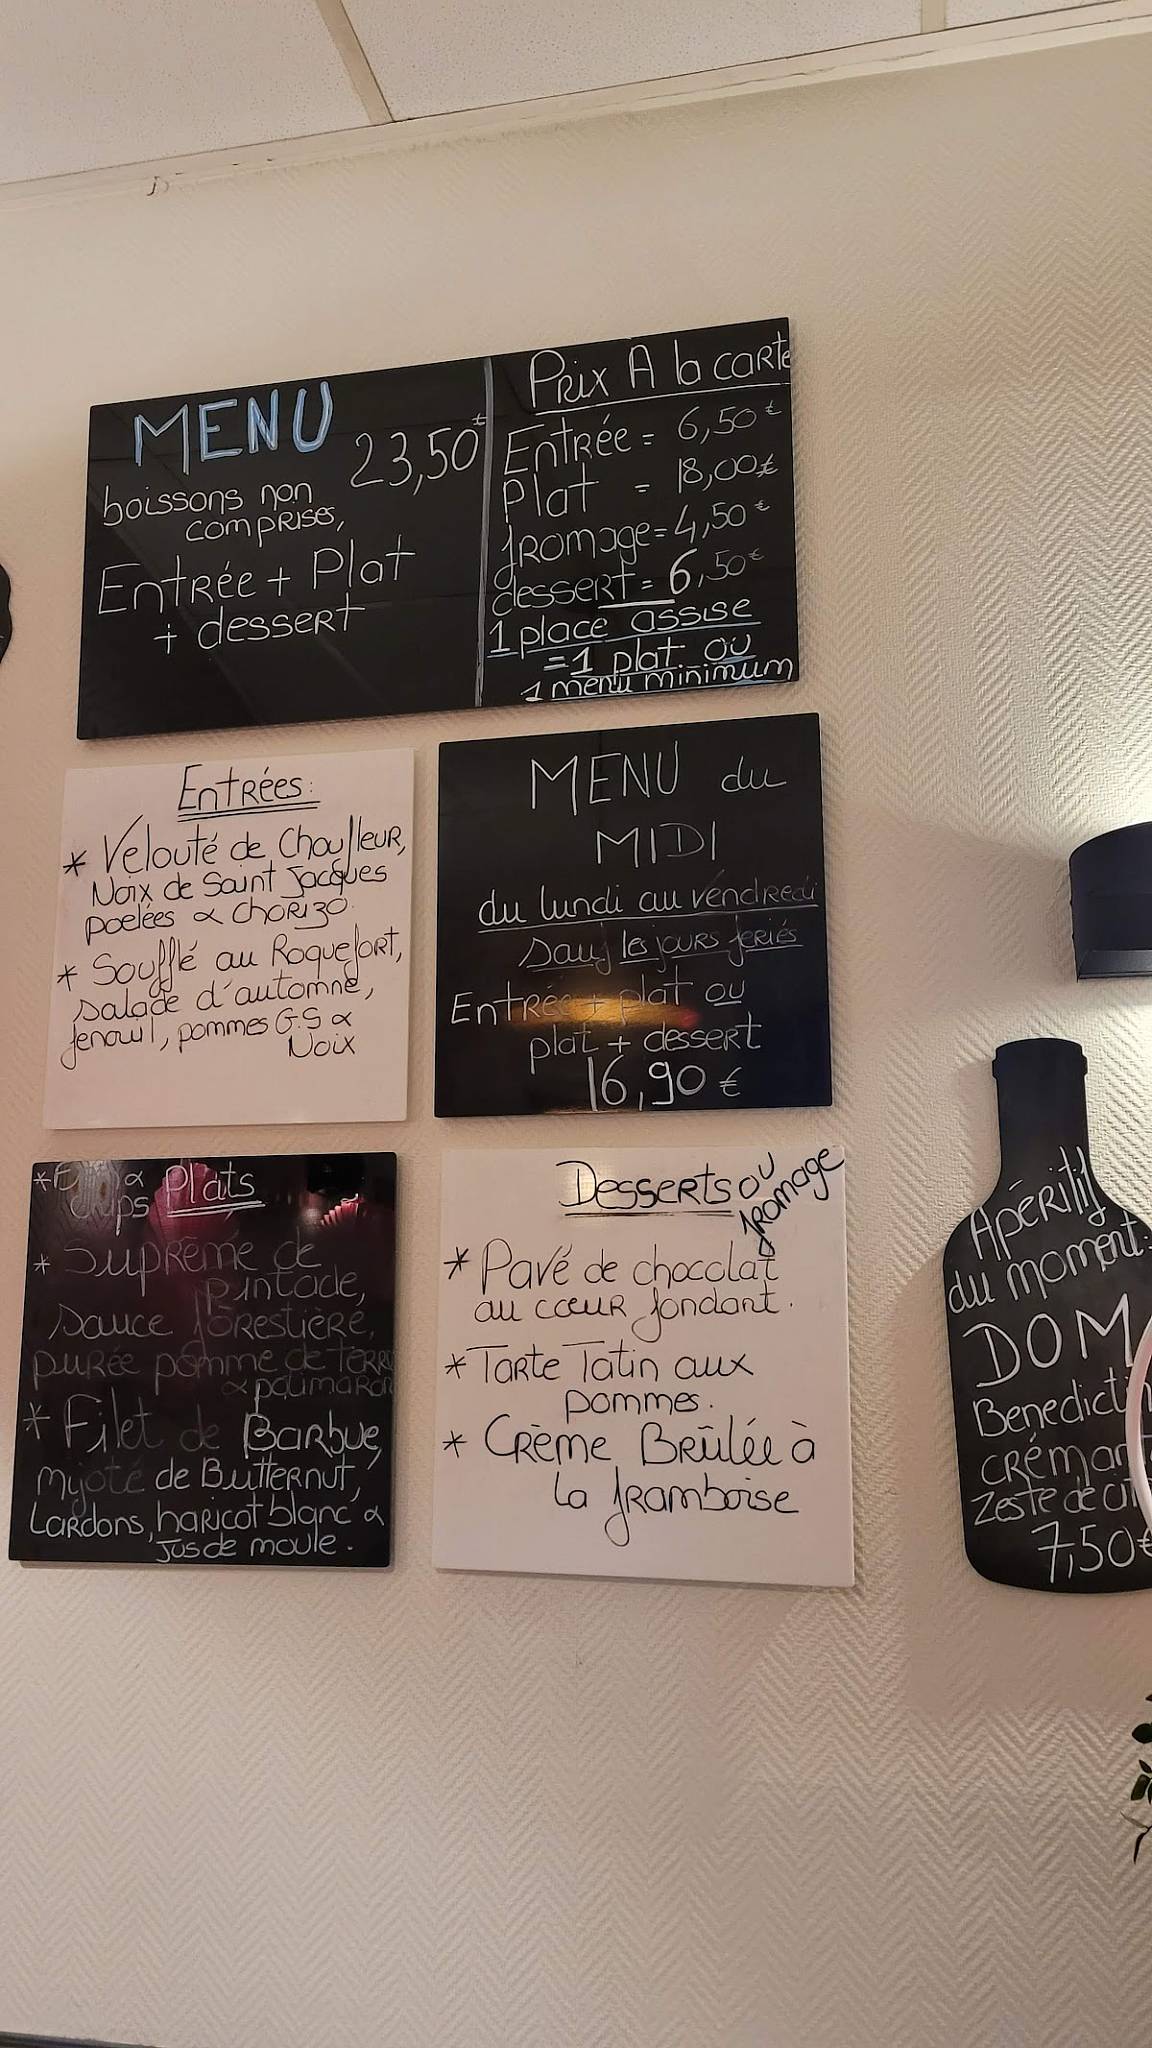 MENU
23,50€
boissons non
comprises,
Entrée + Plat
+ dessert
Prix A la carte
Entrée = 6,50€
Plat = 18,00€
fromage = 4,50€
dessert = 6,50€
1 place assise
= 1 plat ou
1 menu minimum
Entrées:
* Velouté de Chouffleur,
Noix de Saint Jacques
poelées & chorizo.
* Soufflé au Roquefort,
salade d'automne,
fenouil, pommes G.S &
Noix
MENU du
MIDI
du lundi au vendredi
sauf les jours feriés
Entrée + plat ou
plat + dessert
16,90 €
* &
chips Plats
* Suprême de
pintade,
sauce forestière,
purée pomme de terre
& potimaron
* Filet de Barbue,
Myoté de Butternut,
Lardons, haricot blanc &
Jus de moule.
Desserts ou
fromage
* Pavé de chocolat
au cœur fondant.
* Tarte Tatin aux
pommes.
* Crème Brûlée à
la framboise
Apéritif
du moment:
DOM
Benedictin
crémant
Zeste de
7,50€